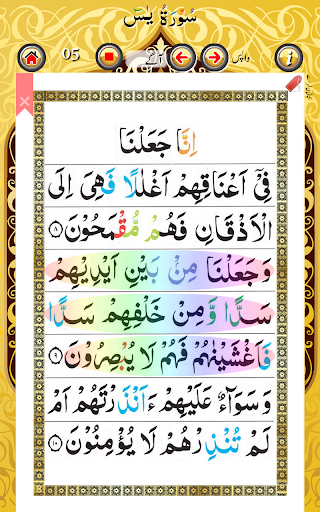 سُوْرَةُ یٰسٓ
05
واپس
اِنَّا جَعَلْنَا
فِیْۤ اَعْنَاقِهِمْ اَغْلٰلًا فَهِیَ اِلَی
الْاَذْقَانِ فَهُمْ مُّقْمَحُوْنَ ﴿۸﴾
وَجَعَلْنَا مِنْۢ بَیْنِ اَیْدِیْهِمْ
سَدًّا وَّمِنْ خَلْفِهِمْ سَدًّا
فَاَغْشَیْنٰهُمْ فَهُمْ لَا یُبْصِرُوْنَ ﴿۹﴾
وَسَوَآءٌ عَلَیْهِمْ ءَاَنْذَرْتَهُمْ اَمْ
لَمْ تُنْذِرْهُمْ لَا یُؤْمِنُوْنَ ﴿۱۰﴾